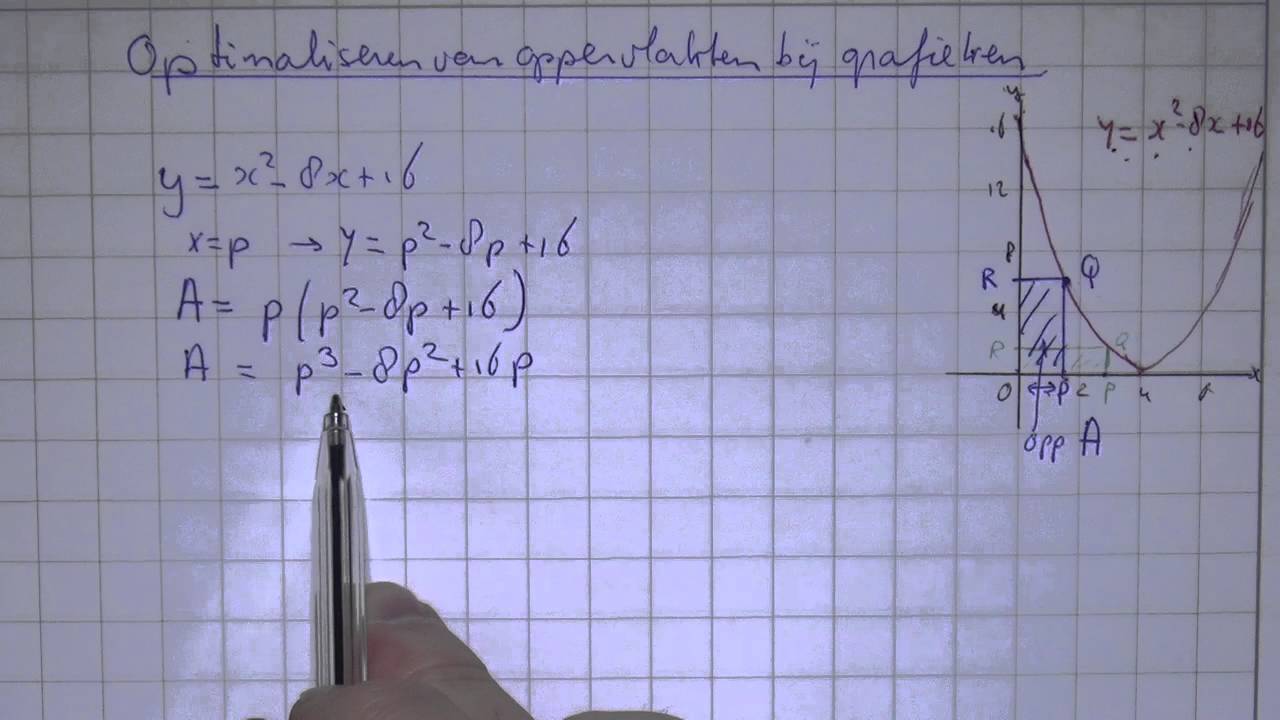 Optimaliseren van oppervlakten bij grafieken
y = x² - 8x + 16
x = p → y = p² - 8p + 16
A = p(p² - 8p + 16)
A = p³ - 8p² + 16p
y
y = x² - 8x + 16
16
12
8
R Q
4
R Q
0 P 2 P 4 x
opp A